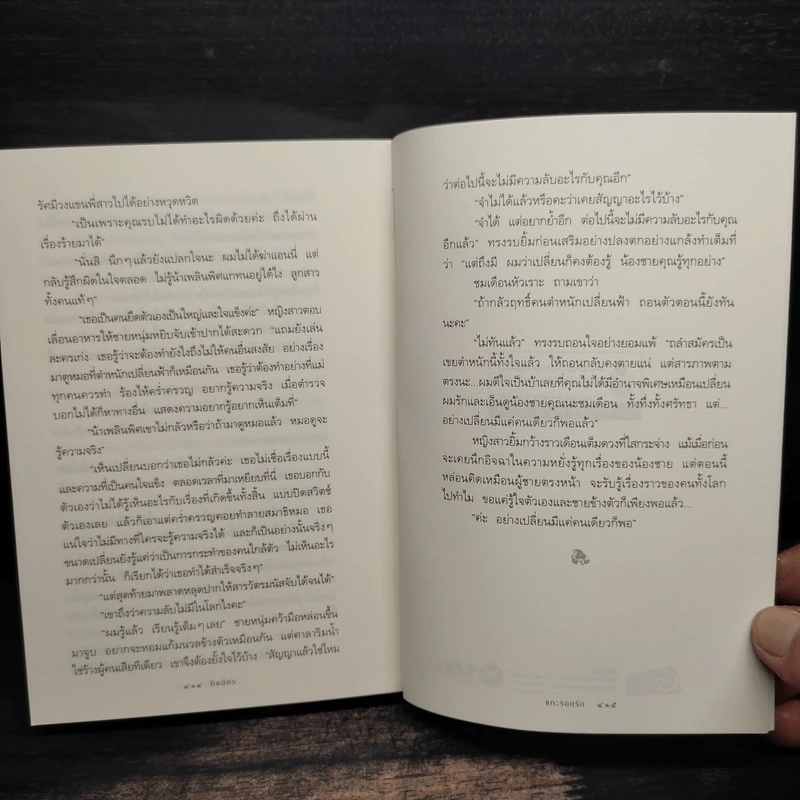 รัศมีวงแขนพี่สาวไปได้อย่างหวุดหวิด
"เป็นเพราะคุณรบไม่ได้ทำอะไรผิดด้วยค่ะ ถึงได้ผ่าน
เรื่องร้ายมาได้"
"นั่นสิ นึกๆ แล้วยังแปลกใจนะ ผมไม่ได้ฆ่าแอนนี่ แต่
กลับรู้สึกผิดในใจตลอด ไม่รู้น้าเพลินพิศแกทนอยู่ได้ไง ลูกสาว
ทั้งคนแท้ๆ"
"เธอเป็นคนยึดตัวเองเป็นใหญ่และใจแข็งค่ะ" หญิงสาวตอบ
เลื่อนอาหารให้ชายหนุ่มหยิบจับเข้าปากได้สะดวก "แถมยังเล่น
ละครเก่ง เธอรู้ว่าจะต้องทำยังไงถึงไม่ให้คนอื่นสงสัย อย่างเรื่อง
มาดูหมอที่ตำหนักเปลี่ยนฟ้าก็เหมือนกัน เธอรู้ว่าต้องทำอย่างที่แม่
ทุกคนควรทำ ร้องไห้คร่ำครวญ อยากรู้ความจริง เมื่อตำรวจ
บอกไม่ได้ก็หาทางอื่น แสดงความอยากรู้อยากเห็นเต็มที่"
"น้าเพลินพิศเขาไม่กลัวหรือว่าถ้ามาดูหมอแล้ว หมอดูจะ
รู้ความจริง"
"เห็นเปลี่ยนบอกว่าเธอไม่กลัวค่ะ เธอไม่เชื่อเรื่องแบบนี้
และความที่เป็นคนใจแข็ง ตลอดเวลาที่มาเหยียบที่นี่ เธอบอกกับ
ตัวเองว่าไม่ได้รู้เห็นอะไรกับเรื่องที่เกิดขึ้นทั้งสิ้น แบบปิดสวิตช์
ตัวเองเลย แล้วก็เอาแต่คร่ำครวญคอยทำลายสมาธิหมอ เธอ
แน่ใจว่าไม่มีทางที่ใครจะรู้ความจริงได้ และก็เป็นอย่างนั้นจริงๆ
ขนาดเปลี่ยนยังรู้แค่ว่าเป็นการกระทำของคนใกล้ตัว ไม่เห็นอะไร
มากกว่านั้น ก็เรียกได้ว่าเธอทำได้สำเร็จจริงๆ"
"แต่สุดท้ายมาพลาดหลุดปากให้สารวัตรมนัสจับได้จนได้"
"เขาถึงว่าความลับไม่มีในโลกไงคะ"
"ผมรู้แล้ว เรียนรู้เต็มๆ เลย" ชายหนุ่มคว้ามือหล่อนขึ้น
มาจูบ อยากจะหอมแก้มนวลข้างตัวเหมือนกัน แต่ศาลาริมน้ำ
ใช่ร้างผู้คนเสียทีเดียว เขาจึงต้องยั้งใจไว้บ้าง "สัญญาแล้วใช่ไหม
๔๑๔ กิ่งฉัตร
ว่าต่อไปนี้จะไม่มีความลับอะไรกับคุณอีก"
"จำไม่ได้แล้วหรือคะว่าเคยสัญญาอะไรไว้บ้าง"
"จำได้ แต่อยากย้ำอีก ต่อไปนี้จะไม่มีความลับอะไรกับคุณ
อีกแล้ว" ทรงรบยิ้มก่อนเสริมอย่างปลงตกอย่างแกล้งทำเต็มที่
ว่า "แต่ถึงมี ผมว่าเปลี่ยนก็คงต้องรู้ น้องชายคุณรู้ทุกอย่าง"
ชมเดือนหัวเราะ ถามเขาว่า
"ถ้ากลัวฤทธิ์คนตำหนักเปลี่ยนฟ้า ถอนตัวตอนนี้ยังทัน
นะคะ"
"ไม่ทันแล้ว" ทรงรบถอนใจอย่างยอมแพ้ "ถลำสมัครเป็น
เขยตำหนักนี้ทั้งใจแล้ว ให้ถอนกลับคงตายแน่ แต่สารภาพตาม
ตรงนะ...ผมดีใจเป็นบ้าเลยที่คุณไม่ได้มีอำนาจพิเศษเหมือนเปลี่ยน
ผมรักและเอ็นดูน้องชายคุณนะชมเดือน ทั้งทึ่งทั้งศรัทธา แต่...
อย่างเปลี่ยนมีแค่คนเดียวก็พอแล้ว"
หญิงสาวยิ้มกว้างราวเดือนเต็มดวงที่ใสกระจ่าง แม้เมื่อก่อน
จะเคยนึกอิจฉาในความหยั่งรู้ทุกเรื่องของน้องชาย แต่ตอนนี้
หล่อนคิดเหมือนผู้ชายตรงหน้า จะรับรู้เรื่องราวของคนทั้งโลก
ไปทำไม ขอแค่รู้ใจตัวเองและชายข้างตัวก็เพียงพอแล้ว...
"ค่ะ อย่างเปลี่ยนมีแค่คนเดียวก็พอ"
แกะรอยรัก ๔๑๕